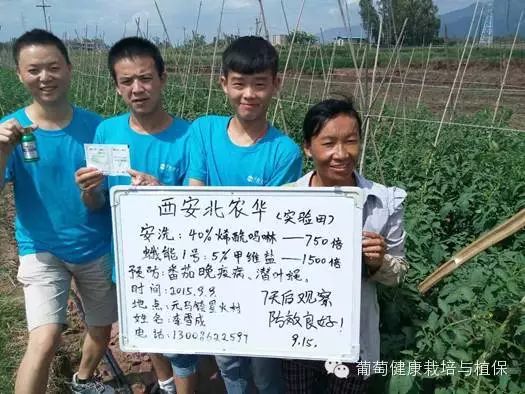 西安北农华(实验田)
安洗:40%烯酰吗啉——750倍
绒能1号:5%甲维盐——1500倍
预防:番茄晚疫病、潜叶蝇。
时间:2015.9.8.
地点:元马镇星火村
姓名:李雪成
电话:13008622597
7天后观察
防效良好!
9.15.
葡萄健康栽培与植保